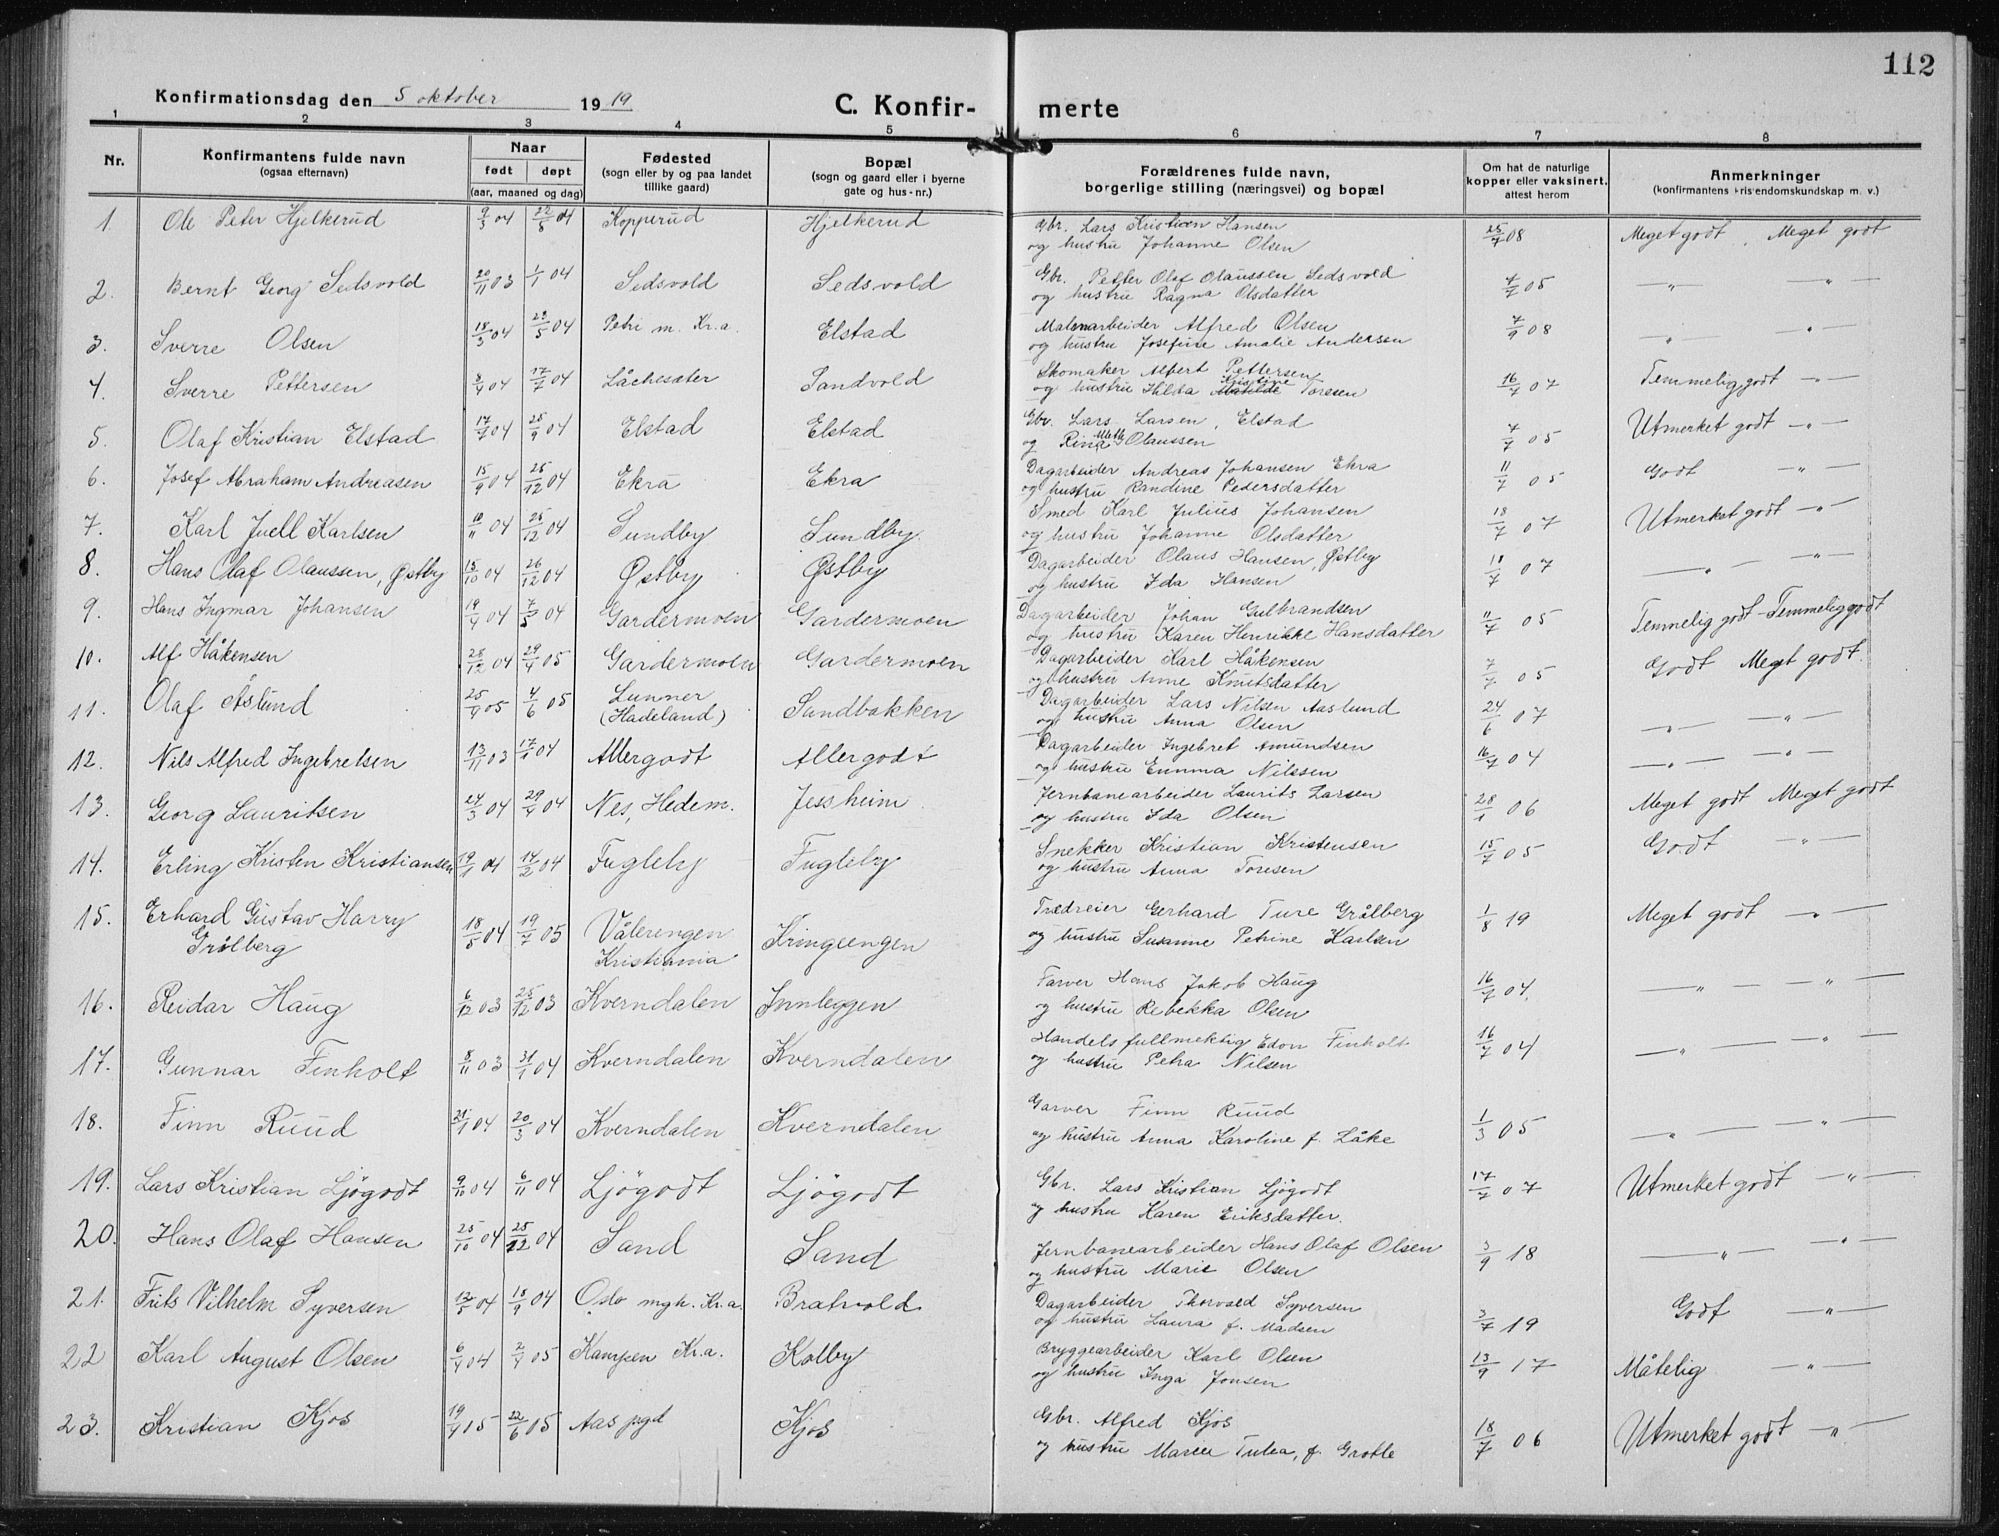 112
Konfirmationsdag den 5 oktober 1919
C. Konfir- merte
1 2 3 4 5 6 7 8
Nr. Konfirmantens fulde navn (ogsaa efternavn) Naar født døpt (aar, maaned og dag) Fødested (sogn eller by og paa landet tillike gaard) Bopæl (sogn og gaard eller i byerne gate og hus-nr.) Forældrenes fulde navn, borgerlige stilling (næringsvei) og bopæl Om hat de naturlige kopper eller vaksinert, attest herom Anmerkninger (konfirmantens kristendomskundskap m. v.)
1. Ole Peter Hjelkerud 9/3 04 22/5 04 Kopperud Hjelkerud Gbr. Lars Kristian Hansen 25/7 08 Meget godt. Meget godt
og hustru Johanne Olsen
2. Bernt Georg Sedsvold 20/11 03 1/1 04 Sedsvold Sedsvold Gbr. Petter Olaf Olaussen Sedsvold 7/7 05 —„— —„—
og hustru Ragna Olsdatter
3. Sverre Olsen 18/3 04 23/5 04 Petri m. Kr.a. Elstad Malerarbeider Alfred Olsen 7/9 08 —„— „
og hustru Josefine Amalie Andersen
4. Sverre Pettersen 8/4 04 17/7 04 Låchesæter Sandvold Skomaker Albert Pettersen 16/7 07 Temmelig godt —„—
og hustru Hilda Kristine Matilde Toresen
5. Olaf Kristian Elstad 17/7 04 25/9 04 Elstad Elstad Gbr. Lars Larsen, Elstad 7/7 05 Utmerket godt —„—
og Rina Math. Olaussen
6. Josef Abraham Andreasen 15/9 04 25/12 04 Ekra Ekra Dagarbeider Andreas Johansen Ekra 11/7 05 Godt —„—
og hustru Randine Pedersdatter
7. Karl Juell Karlsen 10/11 04 25/12 04 Sundby Sundby. Smed Karl Julius Johansen 18/7 07 Utmerket godt —„—
og hustru Johanne Olsdatter
8. Hans Olaf Olaussen, Østby 15/10 04 26/12 04 Østby Østby Dagarbeider Olaus Hansen, Østby 18/7 07 —„— —„—
og hustru Ida Hansen
9. Hans Ingmar Johansen 19/4 04 7/5 04 Gardermoen Gardermoen Dagarbeider Johan Gulbrandsen 11/7 05 Temmelig godt - Temmelig godt
og hustru Karen Henrikke Hansdatter
10. Alf Håkensen 28/12 04 29/4 05 Gardermoen Gardermoen Dagarbeider Karl Håkensen 7/7 05 Godt Meget godt.
og hustru Anne Knutsdatter
11. Olaf Åslund 25/4 05 4/6 05 Lunner (Hadeland) Sandbakken Dagarbeider Lars Nilsen Aaslund 24/6 07 —„— —„—
og hustru Anna Olsen
12. Nils Alfred Ingebretsen 13/11 03 17/1 04 Allergodt Allergodt Dagarbeider Ingebret Amundsen 16/7 04 —„— —„—
og hustru Emma Nilssen
13. Georg Lauritsen 24/3 04 29/4 04 Nes, Hedem. Jessheim Jernbanearbeider Laurits Larsen 28/1 06 Meget godt Meget godt
og hustru Ida Olsen
14. Erling Kristen Kristiansen 19/1 04 14/2 04 Fugleby Fugleby Snekker Kristian Kristensen 15/7 05 Godt —„—
og hustru Anna Toresen
15. Erhard Gustav Harry Grålberg 18/5 04 19/7 05 Vålerengen Kristiania Kringeengen Trædreier Gerhard Ture Grålberg 1/8 19 Meget godt —„—
og hustru Susanne Petrine Karlsen
16. Reidar Haug 6/12 03 25/12 03 Kverndalen Innleggen Farver Hans Jakob Haug 16/7 04. —„— —„—
og hustru Rebekka Olsen
17. Gunnar Finholt 8/11 03 31/1 04 Kverndalen Kverndalen Handelsfullmektig Edon Finholt 16/7 04 —„— —„—
og hustru Petra Nilsen
18. Finn Ruud 21/1 04 20/3 04 Kverndalen Kverndalen Garver Finn Ruud 1/3 05 —„— —„—
og hustru Anna Karoline f. Låke
19. Lars Kristian Ljøgodt 9/10 04 6/11 04 Ljøgodt Ljøgodt Gbr. Lars Kristian Ljøgodt 17/7 07 Utmerket godt —„—
og hustru Karen Eriksdatter.
20. Hans Olaf Hansen 25/10 04 25/12 04 Sand Sand Jernbanearbeider Hans Olaf Olsen 3/9 18 —„— —„—
og hustru Marie Olsen
21. Frits Vilhelm Syversen 12/5 04 18/9 04 Oslo mgh. Kr.a. Bratvold Dagarbeider Thorvald Syversen 3/7 19 Godt —„—
og hustru Laura f. Madsen
22 Karl August Olsen 6/4 04 2/4 05 Kampen Kr.a. Kolby Bryggearbeider Karl Olsen 13/9 17 Måtelig —„—
og hustru Inga Jonsen
23. Kristian Kjos 19/4 05 22/6 05 Aas pgd Kjos Gbr. Alfred Kjos 18/7 06 Utmerket godt —„—
og hustru Maren Tulea, f. Grotle